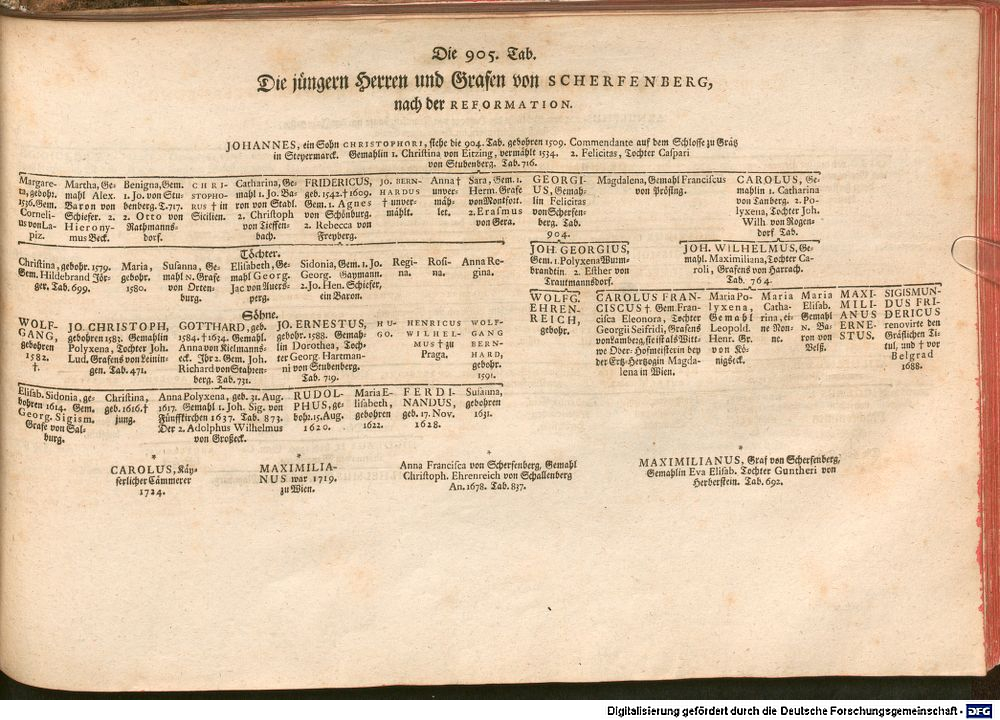 Die 905. Tab.
Die jüngern Herren und Grafen von SCHERFENBERG,
nach der REFORMATION.
JOHANNES, ein Sohn CHRISTOPHORI, siehe die 904. Tab. gebohren 1509. Commendante auf dem Schlosse zu Grätz
in Steyermarck. Gemahlin 1. Christina von Eitzing, vermählt 1534. 2. Felicitas, Tochter Caspari
von Stubenberg. Tab. 716.
Margare-
ta, gebohr.
1536. Gem.
Corneli-
us von La-
piz.
Martha, Ge-
mahl Alex.
Baron von
Schiefer. 2.
Hierony-
mus Beck.
Benigna, Gem.
1. Jo. von Stu-
benberg. T. 717.
2. Otto von
Rathmanns-
dorf.
CHRI-
STOPHO-
RUS † in
Sicilien.
Catharina, Ge-
mahl 1. Jo. Ba-
ron von Stadl.
2. Christoph
von Tieffen-
bach.
FRIDERICUS,
geb. 1542. † 1609.
Gem. 1. Agnes
von Schönburg.
2. Rebecca von
Freyberg.
JO. BERN-
HARDUS
† unver-
mählt.
Anna †
unver-
mäh-
let.
Sara, Gem. 1.
Herm. Grafe
von Montfort.
2. Erasmus
von Gera.
GEORGI-
US, Gemah-
lin Felicitas
von Scherfen-
berg. Tab.
904.
Magdalena, Gemahl Franciscus
von Prösing.
CAROLUS, Ge-
mahlin 1. Catharina
von Tanberg. 2. Po-
lyxena, Tochter Joh.
Wilh von Rogen-
dorf Tab.
Töchter.
Christina, gebohr. 1579.
Gem. Hildebrand Jör-
ger. Tab. 699.
Maria,
gebohr.
1580.
Susanna, Ge-
mahl N. Grafe
von Orten-
burg.
Elisabeth, Ge-
mahl Georg.
Jac von Auers-
perg.
Sidonia, Gem. 1. Jo.
Georg. Gaymann.
2. Jo. Hen. Schiefer,
ein Baron.
Regi-
na.
Rosi-
na.
Anna Re-
gina.
JOH. GEORGIUS,
Gem. 1. Polyxena Wurm-
brandtin. 2. Esther von
Trautmannsdorf.
JOH. WILHELMUS, Ge-
mahl. Maximiliana, Tochter Ca-
roli, Grafens von Harrach.
Tab. 764.
Söhne.
WOLF-
GANG,
gebohren
1582.
†.
JO. CHRISTOPH,
gebohren 1583. Gemahlin
Polyxena, Tochter Joh.
Lud. Grafens von Leinin-
gen. Tab. 471.
GOTTHARD, geb.
1584. † 1634. Gemahl.
Anna von Kielmanns-
eck. Ihr 2. Gem. Joh.
Richard von Stahren-
berg. Tab. 731.
JO. ERNESTUS,
gebohr. 1588. Gemah-
lin Dorothea, Toch-
ter Georg. Hartman-
ni von Stubenberg.
Tab. 719.
HU-
GO.
HENRICUS
WILHEL-
MUS † zu
Praga.
WOLF-
GANG
BERN-
HARD,
gebohr.
1591.
WOLFG.
EHREN-
REICH,
gebohr.
CAROLUS FRAN-
CISCUS † Gem. Fran-
cisca Eleonora, Tochter
Georgii Seifridi, Grafens
von Lamberg, sie ist als Witt-
we Ober-Hofmeisterin bey
der Ertz-Hertzogin Magda-
lena in Wien.
Maria Po-
lyxena,
Gemahl
Leopold.
Henr. Gr.
von Kö-
nigseck.
Maria
Catha-
rina, ei-
ne Non-
ne.
Maria
Elisab.
Gemahl
N. Ba-
ron von
Velß.
MAXI-
MILI-
ANUS
ERNE-
STUS.
SIGISMUN-
DUS FRI-
DERICUS
renovirte den
Gräflichen Ti-
tul, und † vor
Belgrad
1688.
Elisab. Sidonia, ge-
bohren 1614. Gem.
Georg. Sigism.
Grafe von Sal-
burg.
Christina,
geb. 1616. †
jung.
Anna Polyxena, geb. 31. Aug.
1617. Gemahl 1. Joh. Sig. von
Fünffkirchen 1637. Tab. 873.
Der 2. Adolphus Wilhelmus
von Großeck.
RUDOL-
PHUS, ge-
bohr. 15. Aug.
1620.
Maria E-
lisabeth,
gebohren
1622.
FERDI-
NANDUS,
geb. 17. Nov.
1628.
Susanna,
gebohren
1631.
*
CAROLUS, Käy-
serlicher Cämmerer
1724.
*
MAXIMILIA-
NUS war 1719.
zu Wien.
*
Anna Francisca von Scherfenberg, Gemahl
Christoph. Ehrenreich von Schallenberg
An. 1678. Tab. 837.
*
MAXIMILIANUS, Graf von Scherfenberg,
Gemahlin Eva Elisab. Tochter Guntheri von
Herberstein. Tab. 692.
Digitalisierung gefördert durch die Deutsche Forschungsgemeinschaft - DFG